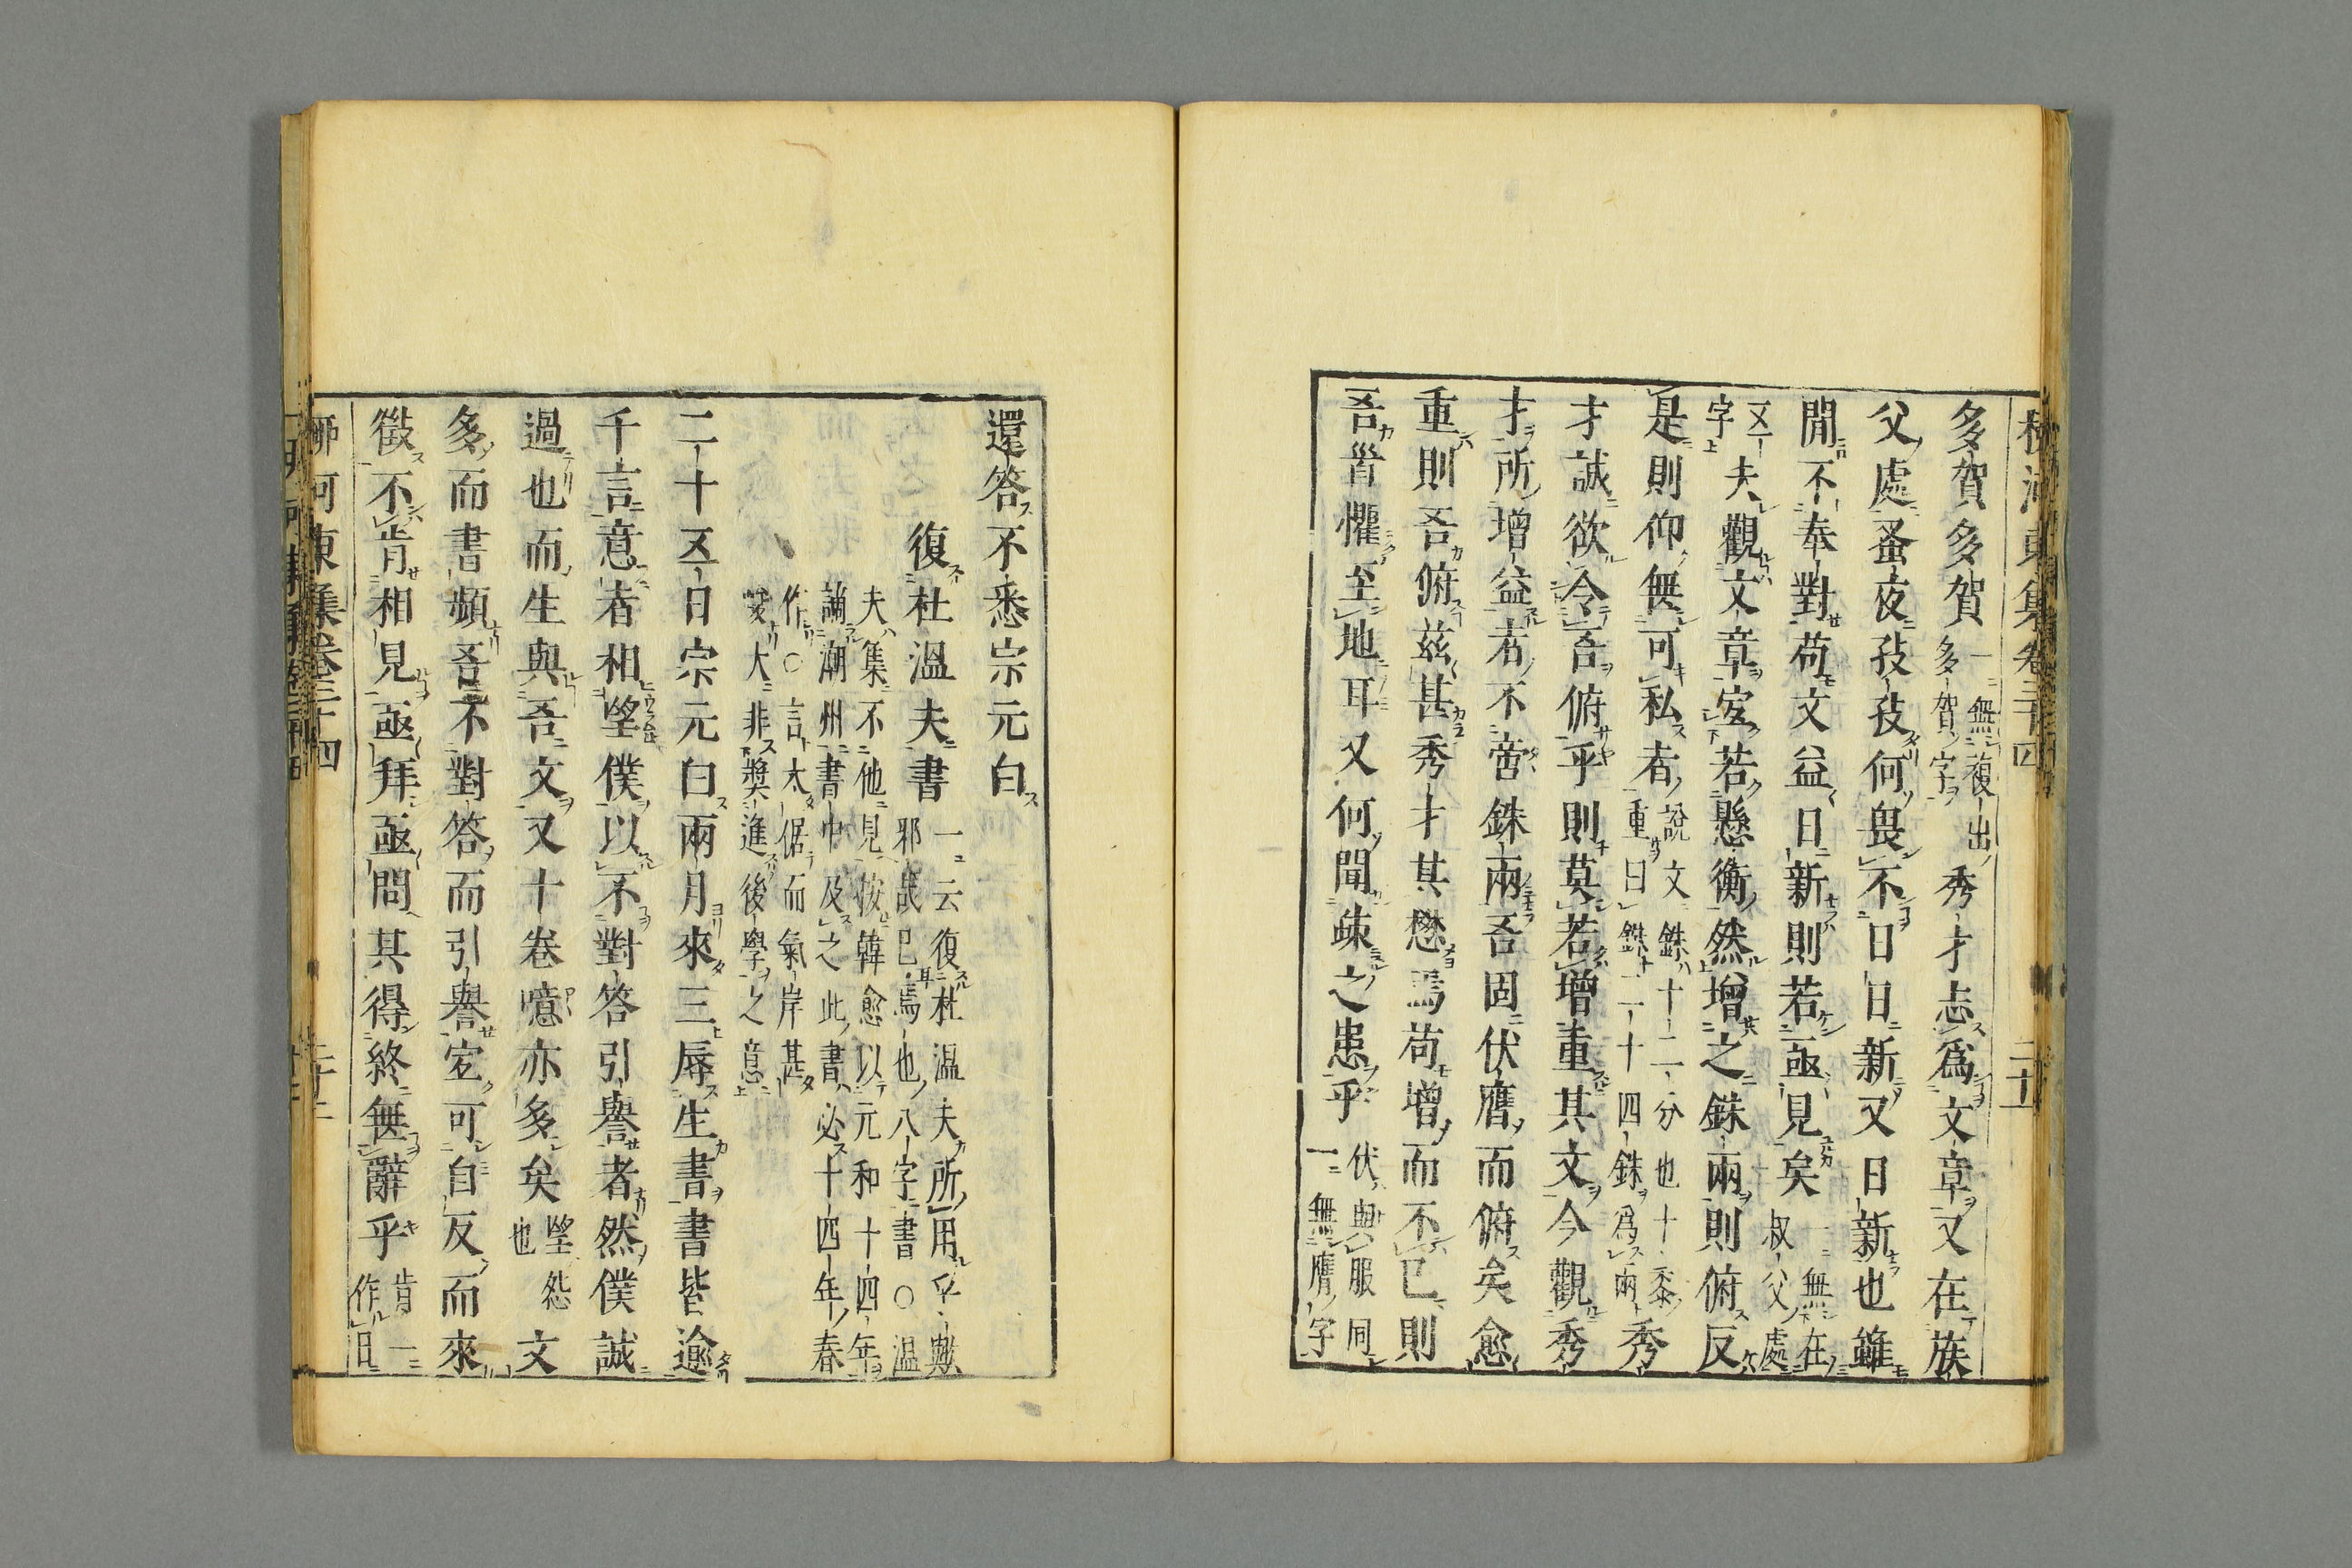 柳河東集卷三十四
多賀多賀一無複出多賀字秀才志爲文章又在族
父處蚤夜孜孜何畏不日日新又日新也雖
閒不奉對苟文益日新則若亟見矣一無在叔父處
又一字夫觀文章宜若懸衡然增之銖兩則俯反
是則仰無可私者說文銖十二分也十黍重曰銖二十四銖爲兩秀
才誠欲令吾俯乎則莫若增重其文今觀秀
才所增益者不啻銖兩吾固伏膺而俯矣愈
重則吾俯茲甚秀才其懋焉苟增而不已則
吾首懼至地耳又何閒疎之患乎伏與服同一無膺字
還答不悉宗元白
復杜溫夫書一云復杜溫夫所用乎歟邪哉已耳焉也八字書○溫
夫集不他見按韓愈以元和十四年
謫潮州書中及之此書必十四年春
作○言太倨而氣岸甚
峻大非奬進後學之意
二十五日宗元白兩月來三辱生書書皆逾
千言意若相望僕以不對答引譽者然僕誠
過也而生與吾文又十卷噫亦多矣望怨也文
多而書頻吾不對答而引譽宜可自反而來
徵不肯相見亟拜亟問其得終無辭乎肯一作曰
柳河東集卷三十四